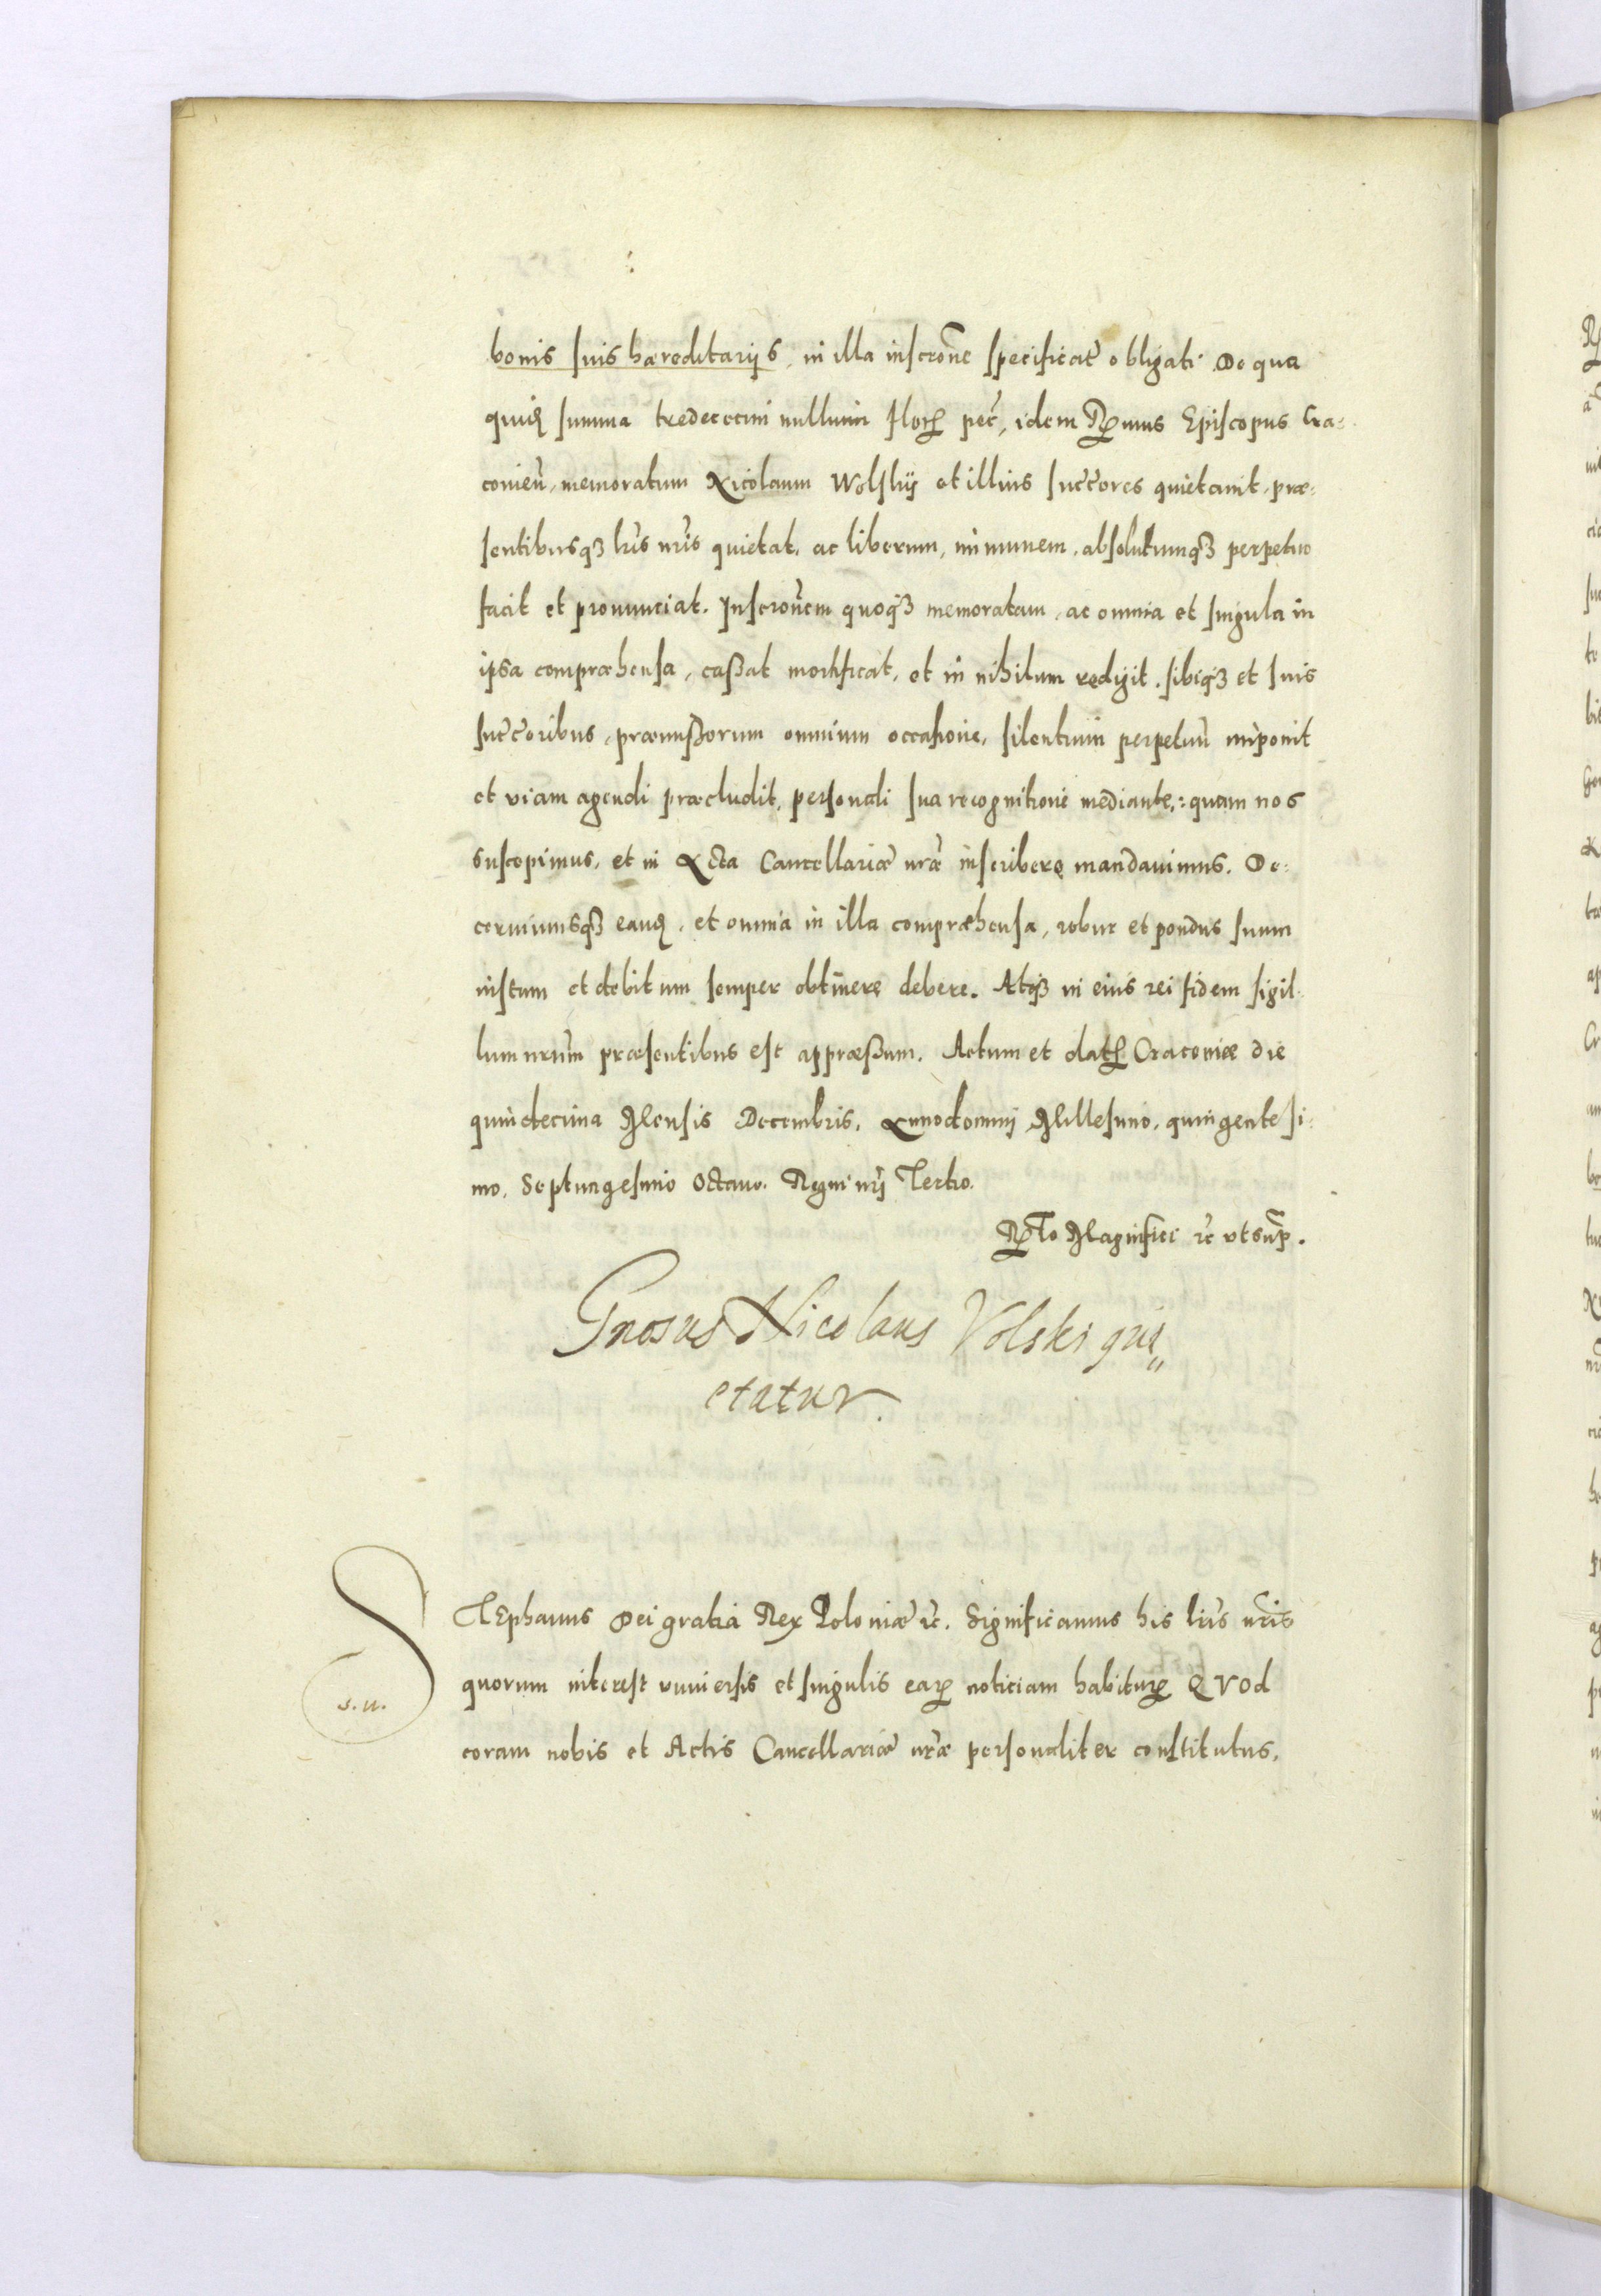 bonis suis hæreditarijs, in illa inscrõne specificať obligati. De qua
quid summa tredecem millium floř peč, idem Rmus Episcopus Cra-
covieñ, memoratum Nicolaum Wolskij et illius succores quietavit, præ-
sentibusq3 lris nris quietat, ac liberum, immunem, absolutumq3 perpetuo
facit et pronunciat. Inscronem quoq3 memoratam, ac omnia et singula in
ipsa compræhensa, cassat mortificat, et in nihilum redigit. sibiq3 et suis
succoribus, præmissorum omnium occasione, silentium perpetuũ imponit
et viam agendi præcludit, personali sua recognitione mediante: quam nos
suscepimus, et in Acta Cancellariæ nræ inscribere mandavimus. De-
cernimusq3 eand, et omnia in illa compræhensa, robur et pondus suum
iustum et debitum semper obtinere debere. Atq3 in eius rei fidem sigil-
lum nrum præsentibus est appræssum. Actum et dať Cracoviæ die
quindecima Mensis Decembris, Anno domini Millesimo, quingentesi-
mo, Septuagesimo Octavo. Regni nri Tertio.
Rlo Magnifici &c ut sup.
Gnosus Nicolaus Volski qui„
etatur.
STEphanus Dei gratia Rex Poloniæ &c. Significamus his lris nris
quorum interest universis et singulis eař noticiam habituř QVOd
s. n.
coram nobis et Actis Cancellariæ nræ personaliter constitutus,